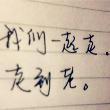 我们一起走。
走到老。